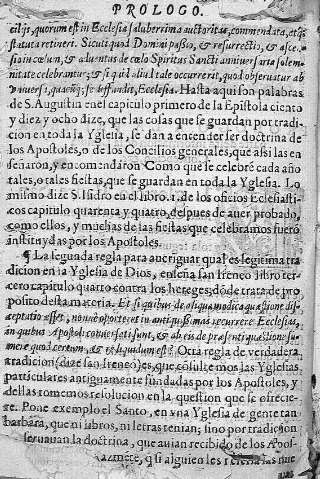 PROLOGO.
cilijs, quorum est in Ecclesia saluberrima auctoritas, commendata, atq;
statuta retineri. Sicuti quod Domini passio, & resurrectio, & asce-
sio in cœlum, & aduentus de cœlo Spiritus Sancti anniuersaria solem-
nitate celebrantur; & si quid aliud tale occurrerit, quod obseruatur ab
vniuersa, quacũq; se diffundit, Ecclesia. Hasta aqui son palabras
de S. Augustin en el capitulo primero de la Epistola ciento
y diez y ocho dize, que las cosas que se guardan por tradi-
cion en toda la Yglesia, se dan a entender ser doctrina de
los Apostoles, o de los Concilios generales, que assi las en
señaron, y encomendaron Como que se celebre cada año
tales, o tales fiestas, que se guardan en toda la Yglesia. Lo
mismo dize S. Isidro en el libro. 1. de los oficios Eclesiasti-
cos capitulo quarenta y quatro, despues de auer probado,
como ellos, y muchas de las fiestas que celebramos fuerõ
instituydas por los Apostoles.
¶ La segunda regla para aueriguar qual es legitima tra
dicion en la Yglesia de Dios, enseña san Ireneo libro ter-
cero capitulo quatro contra los hereges; dõde trata de pro
posito desta materia. Et si quibus de aliqua modica quæstione dis-
ceptatio esset, nonne oporteret in antiquissimas recurrere Ecclesias,
in quibus Apostoli conuersati sunt, & ab eis de præsenti quæstione su-
mere quod certum, & liquidum est? Otra regla de verdadera
tradicion (dize san Ireneo) es, que cõsultemos las Yglesias
particulares antiguamente fundadas por los Apostoles, y
dellas tomemos resolucion en la question que se ofrecie-
re. Pone exemplo el Santo, en vna Yglesia de gente tan
barbara, que ni libros, ni letras tenian; sino por tradicion
seruauan la doctrina, que auian recibido de los Apos-
azmete, q si alguien les